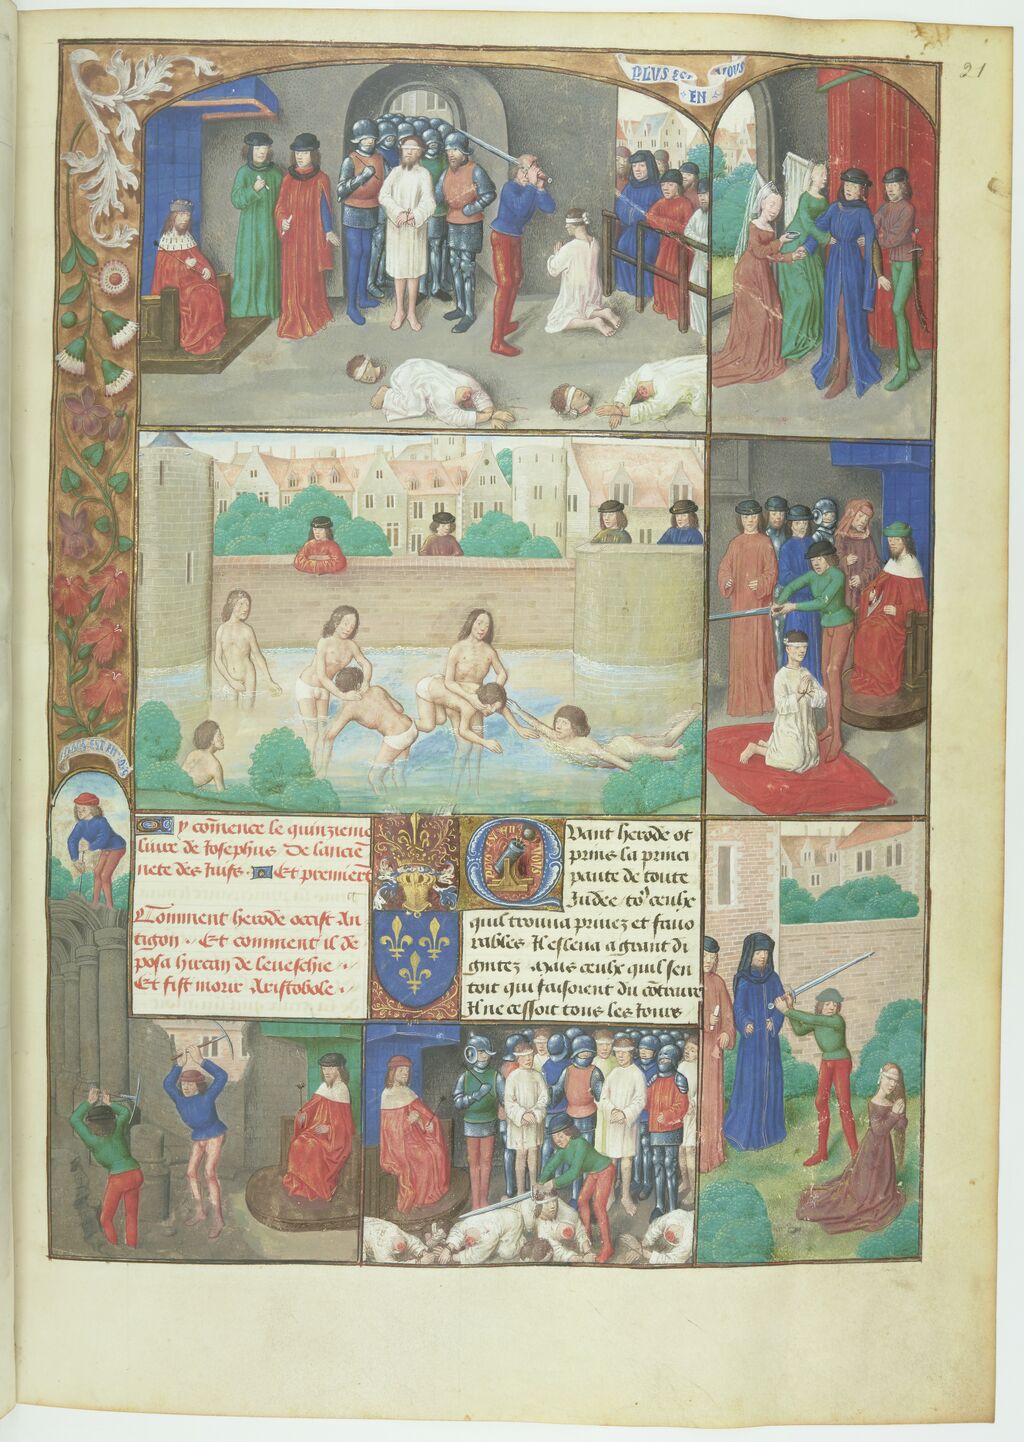 21
PLUS EST EN VOUS
PLUS EST EN VOUS
Cy co͞mence le quinzieme
liure de Josephus De lancie͞
nete des Juifs. Et premieremt
Comment herode occist An
tigon. Et comment il de
posa hircan de leueschie.
Et fist mourir Aristobole.
Quant herode ot
prins la princi
paute de toute
Judee to9 ceulx
quil trouua priuez et fauo
rables Il esleua a grant di
gnitez. Mais ceulx quil sen
toit qui faisoient du co͞traire
Il ne cessoit tous les iours